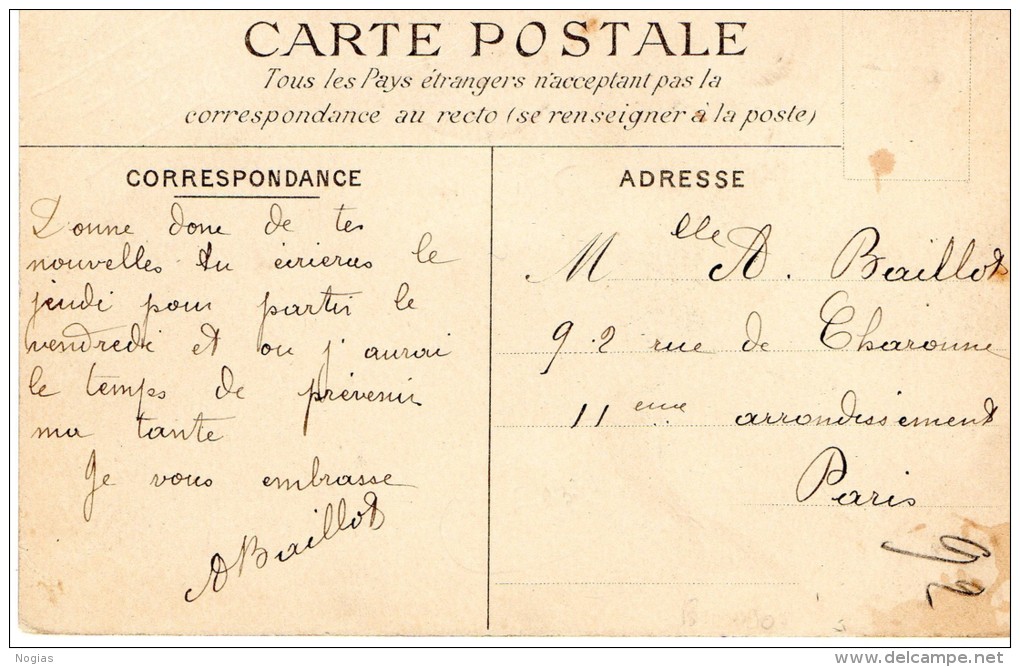 CARTE POSTALE
Tous les Pays étrangers n'acceptant pas la
correspondance au recto (se renseigner à la poste)
CORRESPONDANCE
Donne donc de tes
nouvelles tu écrieras le
jeudi pour partir le
vendredi et ou j'aurai
le temps de prévenir
ma tante
Je vous embrasse
A Baillot
ADRESSE
Melle A. Baillot
92 rue de Charonne
11eme arrondissement
Paris
92
Nogias
www.delcampe.net